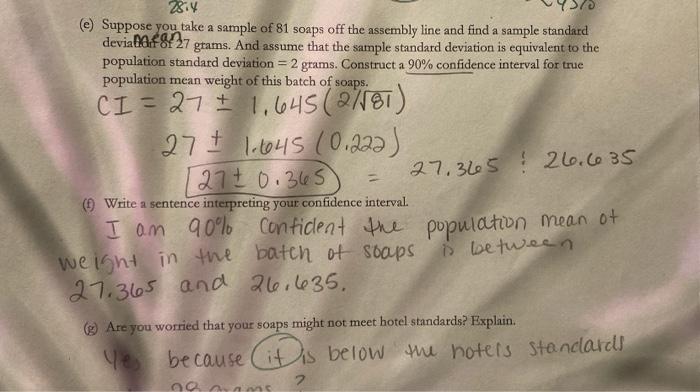 28.4
(e) Suppose you take a sample of 81 soaps off the assembly line and find a sample standard
mean
deviation of 27 grams. And assume that the sample standard deviation is equivalent to the
population standard deviation = 2 grams. Construct a 90% confidence interval for true
population mean weight of this batch of soaps.
CI = 27 ± 1.645 (2/√81)
27 ± 1.645 (0.222)
27 ± 0.365 = 27.365 ; 26.635
(f) Write a sentence interpreting your confidence interval.
I am 90% confident the population mean of
weight in the batch of soaps is between
27.365 and 26.635.
(g) Are you worried that your soaps might not meet hotel standards? Explain.
Yes because it is below the hotels standards
?